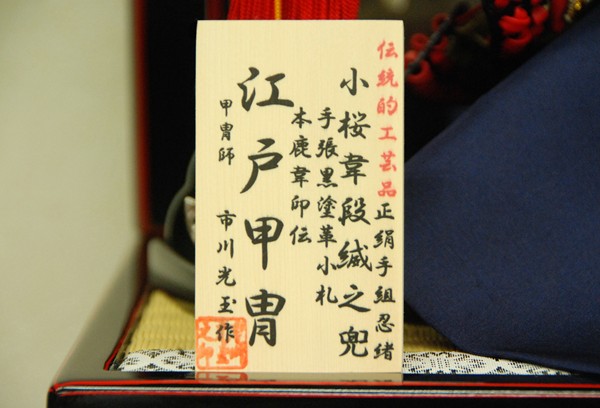 伝統的工芸品
正絹手組忍緒
小桜韋段縅之兜
手張黒塗革小札
本鹿韋印伝
江戸甲冑
甲冑師 市川光玉作